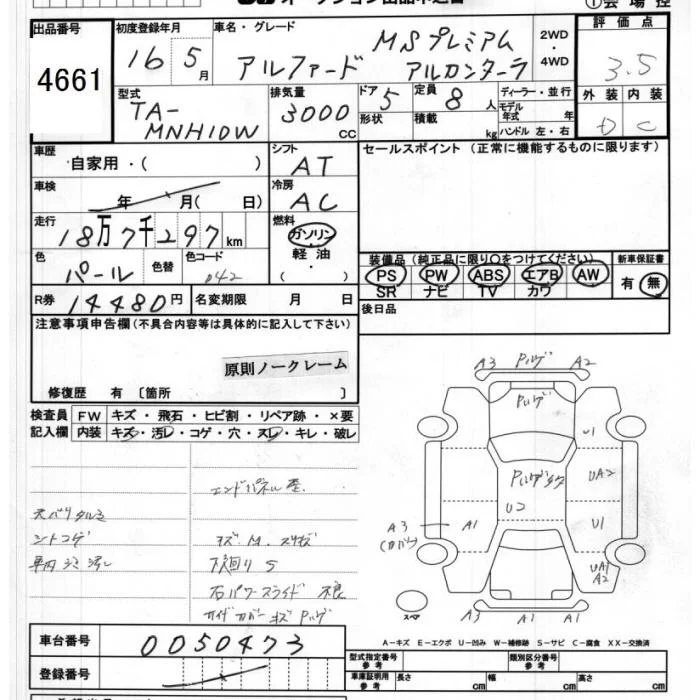 出品番号
4661
初度登録年月
16 5月
車名・グレード
アルファード
MSプレミアム
アルカンターラ
2WD
・
4WD
評価点
3.5
外装 内装
D C
型式
TA-
MNH10W
排気量
3000
cc
ドア 5
形状
定員 8人
積載 kg
ディーラー・並行
モデル年式 年
ハンドル 左・右
車歴
自家用・( )
シフト
AT
セールスポイント (正常に機能するものに限ります)
車検
年 月( 日)
冷房
AC
走行
18万7千297km
燃料
ガソリン
軽油
( ・ )
色
パール
色替
色コード
042
装備品 (純正品に限り○をつけてください)
PS PW ABS エアB AW
SR ナビ TV カワ
新車保証書
有・無
R券 14480円
名変期限 月 日
後日品
注意事項申告欄(不具合内容等は具体的に記入して下さい)
原則ノークレーム
修復歴 有 〔箇所 〕
検査員
記入欄
FW キズ・飛石・ヒビ割・リペア跡・×要
内装 キズ・汚レ・コゲ・穴・スレ・キレ・破レ
エンドパネル歪
天バリタルミ
シートコゲ
車内シミ汚レ
下廻りS
右パワースライド 不良
サイドカバーキズ
A3 A2
U1
UA2
U2
A3
(カバー)
A1
U1
UA1
A2
スペア
A3 A1 A1
A-キズ E-エクボ U-凹み W-補修跡 S-サビ C-腐食 XX-交換済
車台番号
0050473
登録番号
型式指定番号
参考
類別区分番号
参考
車庫証明用
参考
長さ cm
幅 cm
高さ cm